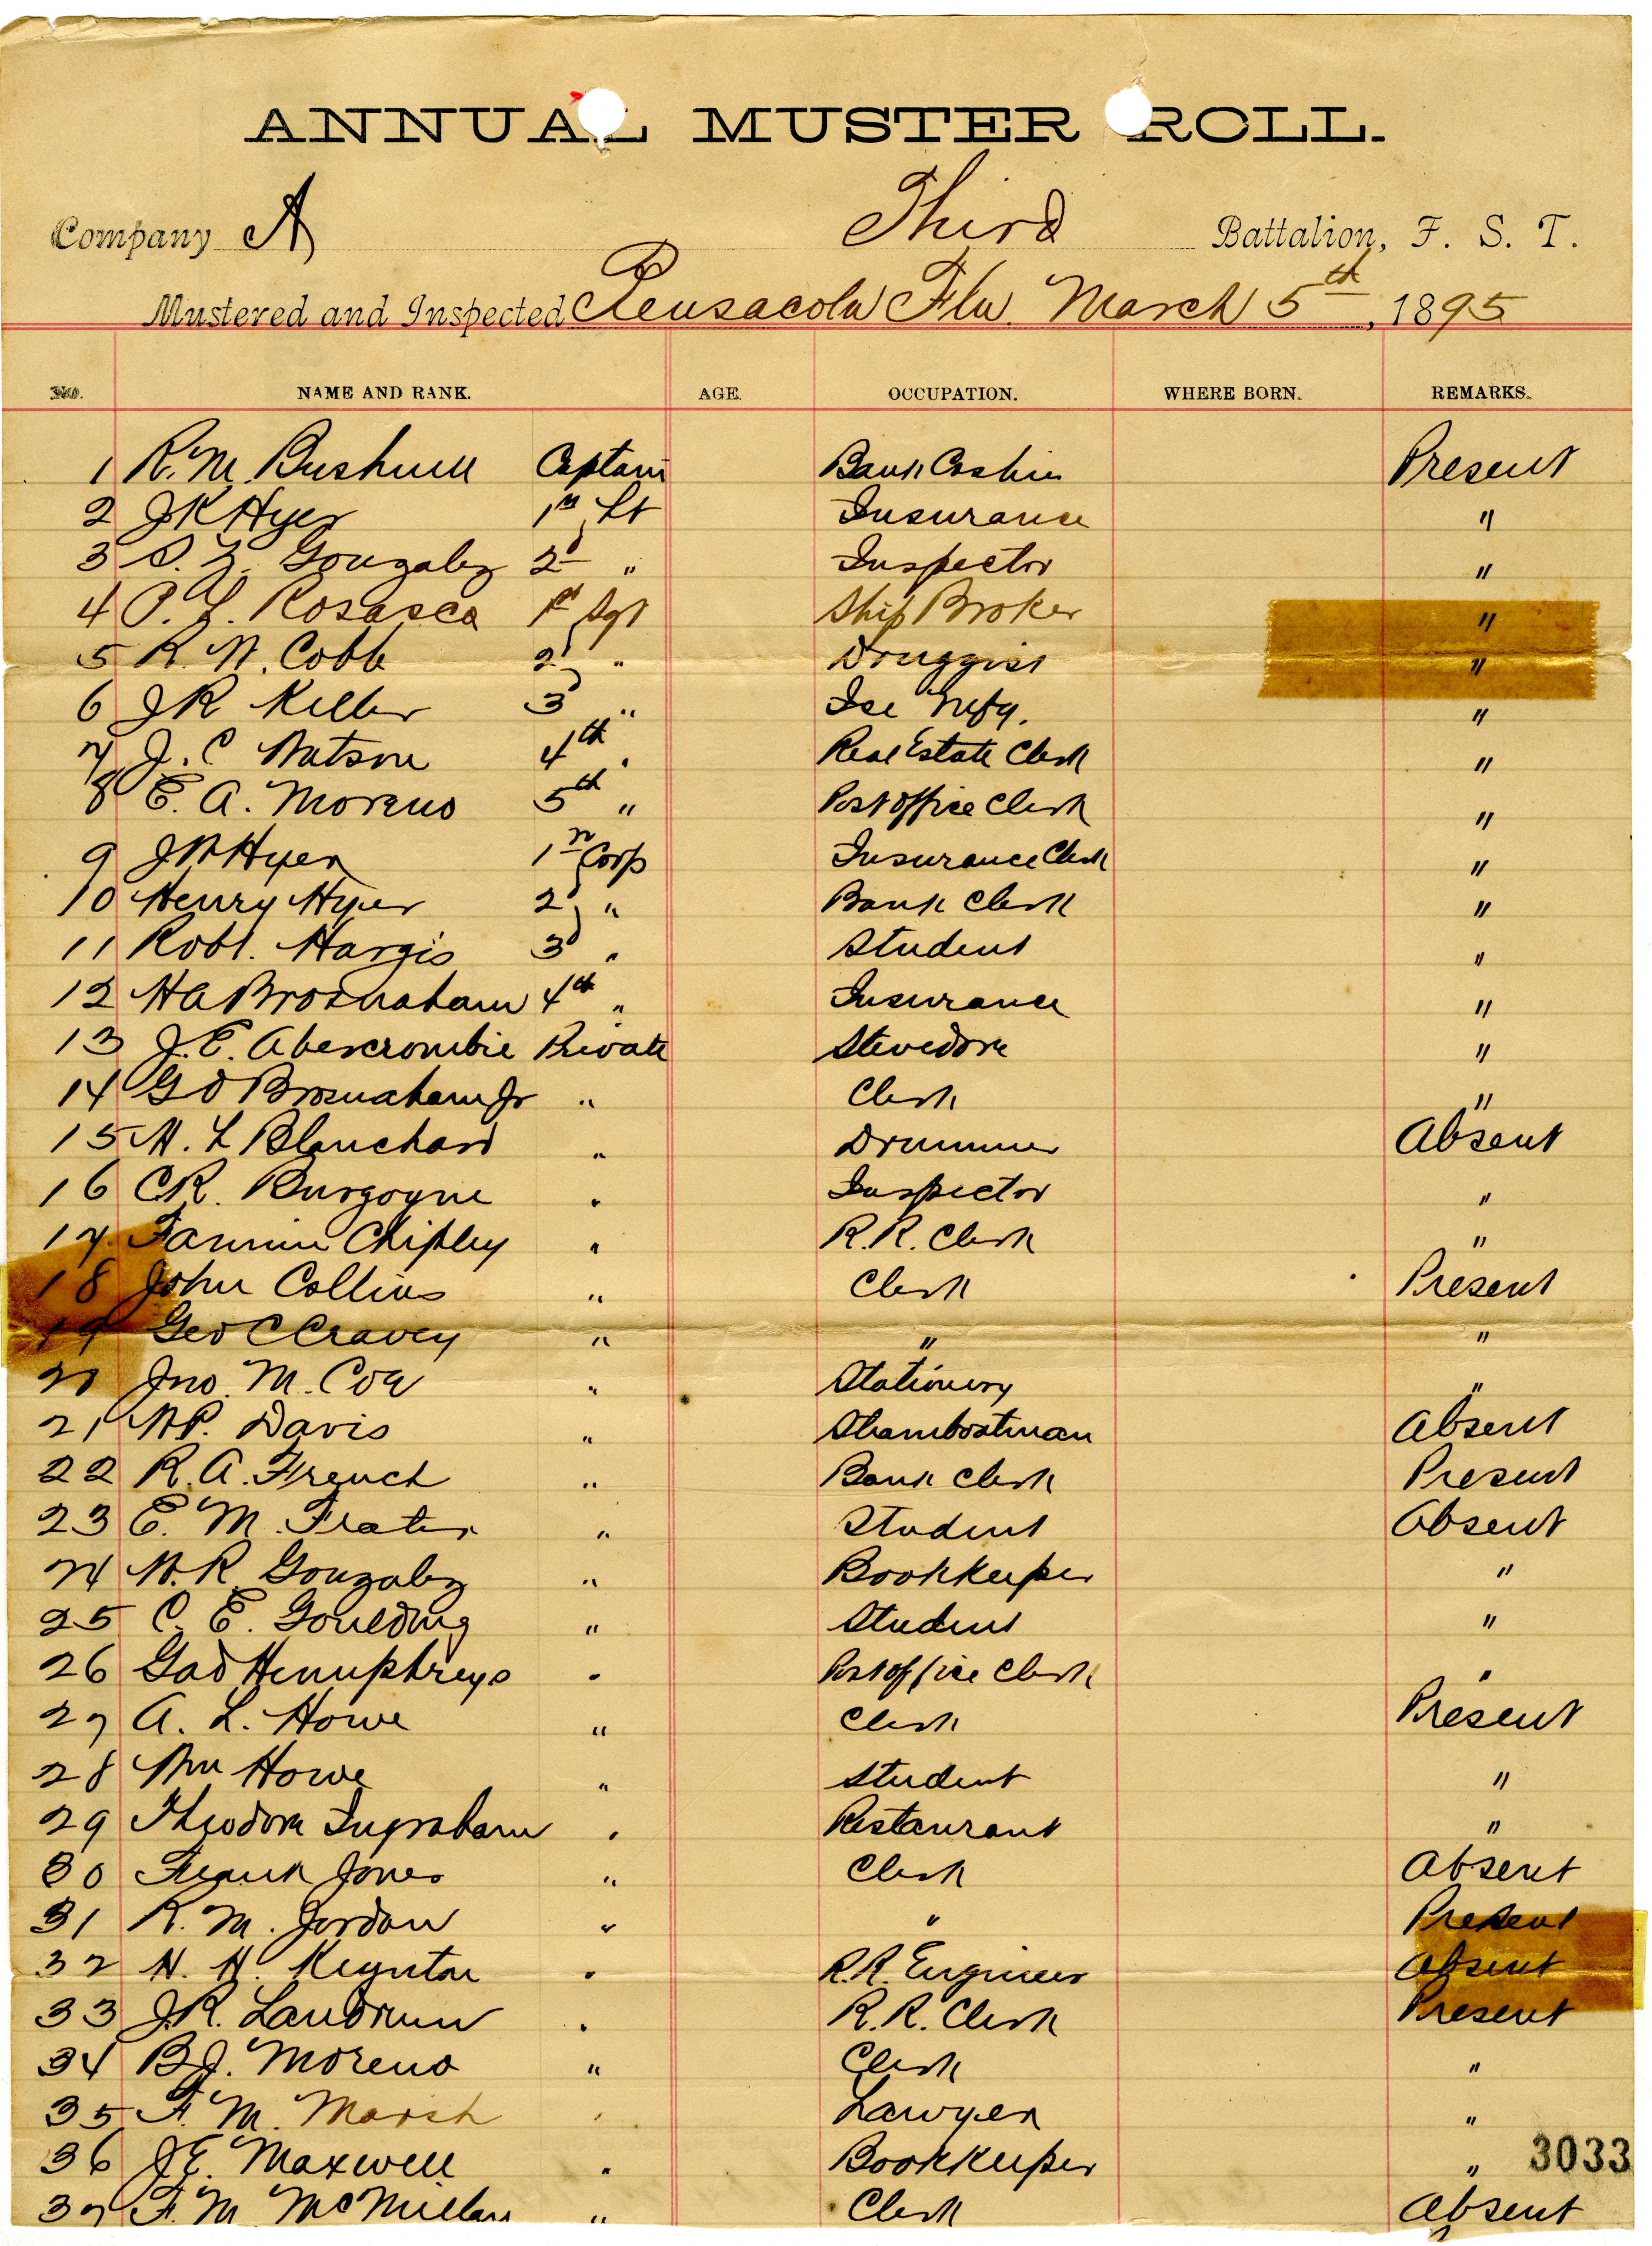 ANNUAL MUSTER ROLL.
Company A Third Battalion, F. S. T.
Mustered and Inspected Pensacola Fla. March 5th, 1895
NO. NAME AND RANK. AGE. OCCUPATION. WHERE BORN. REMARKS.
1 R. M. Bushnell Captain Bank Cashier Present
2 J K Hyer 1st Lt Insurance "
3 S. Z. Gonzalez 2d " Inspector "
4 P. L. Rosasco 1st Sgt Ship Broker "
5 R. W. Cobb 2d " Druggist "
6 J R Keller 3d " Ice Mfg. "
7 J. C Watson 4th " Real Estate Clerk "
8 E. A. Moreno 5th " Post office Clerk "
9 J W Hyer 1st Corp Insurance Clerk "
10 Henry Hyer 2d " Bank Clerk "
11 Robt. Hargis 3d " Student "
12 H A Brosnaham 4th " Insurance "
13 J. E. Abercrombie Private Stevedore "
14 G O Brosnaham Jr " Clerk "
15 W. L Blanchard " Drummer Absent
16 C R. Burgoyne " Inspector "
17 Fannin Chipley " R. R. Clerk "
18 John Collins " Clerk Present
19 Geo C Cravey " " "
20 Jno. M. Coe " Stationery "
21 W P. Davis " Steamboatman Absent
22 R. A. French " Bank Clerk Present
23 E. M. Frater " Student Absent
24 W. R. Gonzalez " Bookkeeper "
25 C. E. Goulding " Student "
26 Gad Humphreys " Post office Clerk "
27 A. L. Howe " Clerk Present
28 Wm Howe " Student "
29 Theodore Ingraham " Restaurant "
30 Frank Jones " Clerk Absent
31 R. M. Jordan " " Present
32 H. H. " R. R. Engineer Absent
33 J. R. Landrum " R. R. Clerk Present
34 B. J. Moreno " Clerk "
35 F. M. Marsh " Lawyer "
36 J E. Maxwell " Bookkeeper " 3033
37 F. M McMillan " Clerk Absent